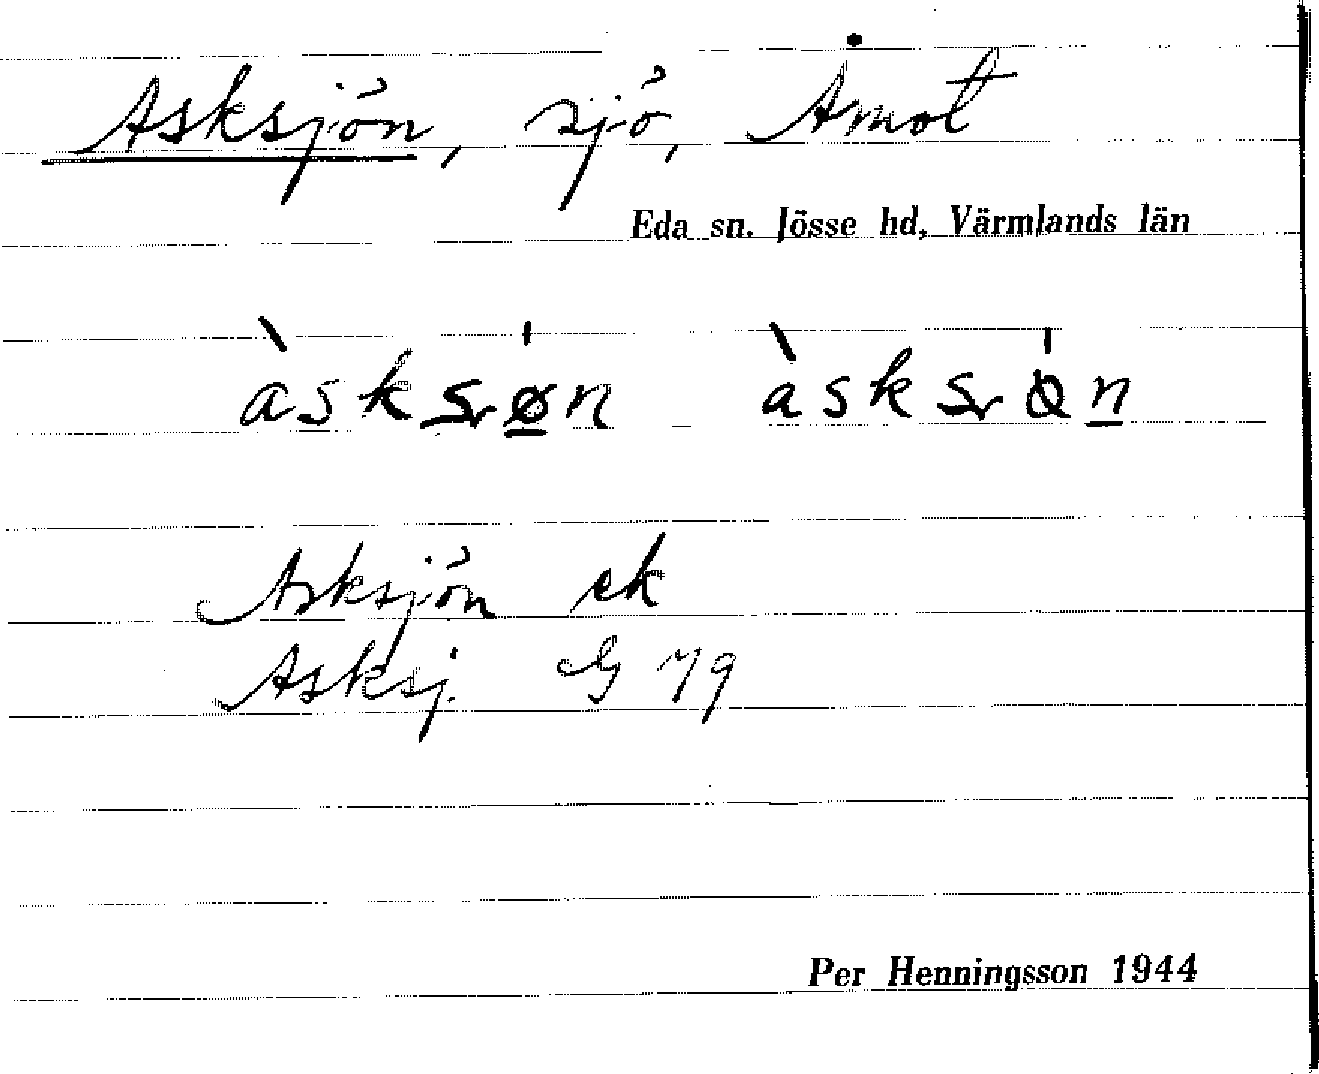 Asksjön, sjö, Åmot
Eda sn. Jösse hd, Värmlands län
Asksjön ek
Asksj. G 79
Per Henningsson 1944